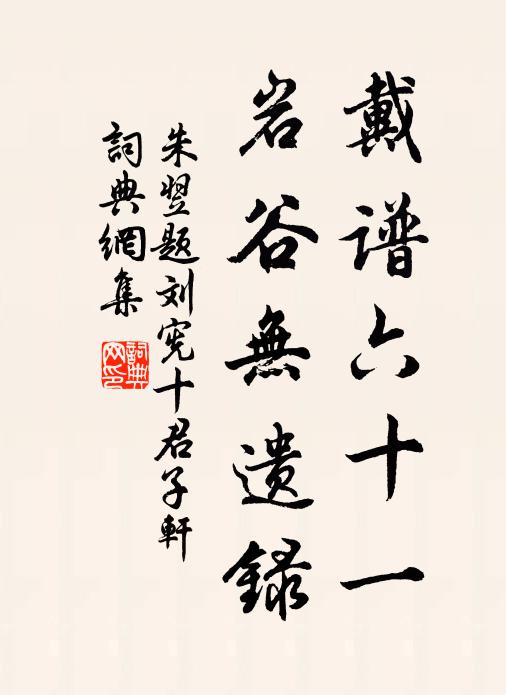 戴谱六十一
岩谷無遗録
朱翌题刘宪十君子軒
詞典網集
詞典网印